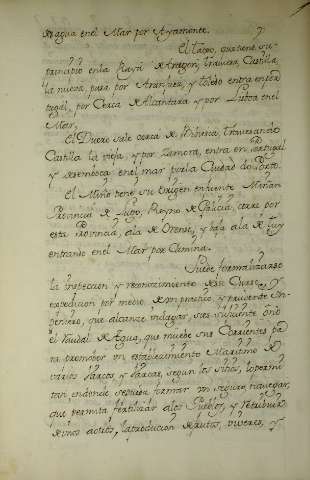 sagua en el Mar por Ayamonte. y
El Taxo, que tiene su
principio en la Raya de Aragon, traviesa Castilla
la nueva, pasa por Aranjuez, y toledo entra en Por
tugal, por cerca de Alcantara y por Lisboa en el
Mar.
El Duero sale cerca de travesando
Castilla la vieja, y por Zamora, entra en Portugal
y desemboca en el mar por la Ciudad do Porto.
El Miño tiene su origen en fuente Miñan
Provincia de Lugo, Reyno de Galicia, corre por
esta Provincia, a la de Orense, y baja a la de Tuy
entrando en el Mar por Camina.
Puede formalizarse
la inspeccion y reconocimiento de su Curso, y
expedicion por medio de un practico, y prudente In-
geniero, que alcanze indagar, si es suficiente
el Caudal de Agua, que mueve sus Corrientes pa
ra promober un establecimiento Maritimo de
varios Barcos, y Barcas, segun los sitios, lo permi
tan, en donde se pueda formar un seguro navegar,
que permita fertilizar a los Pueblos, y retribuir
de unos a otros, la produccion de frutos, viveres, y